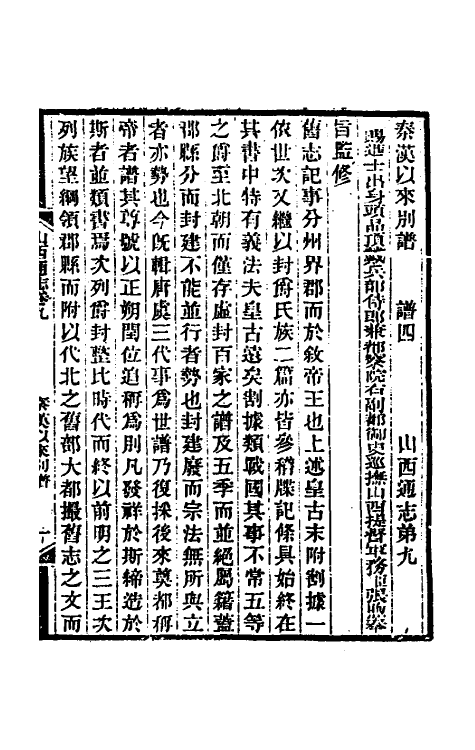 秦漢以來別譜　譜四　山西通志第九
賜進士出身頭品頂戴兵部侍郎兼都察院右副都御史巡撫山西提督軍務張煦奉
旨監修
舊志記事分州界郡而於敘帝王也上述皇古末附割據一
依世次又繼以封爵氏族二篇亦皆參稽牒記條具始終在
其書中特有義法夫皇古遠矣割據類戰國其事不常五等
之爵至北朝而僅存虛封百家之譜及五季而並絕屬籍蓋
郡縣分而封建不能並行者勢也封建廢而宗法無所與立
者亦勢也今既輯唐虞三代事爲世譜乃復採後來奠都稱
帝者譜其尊號以正朔閏位追稱爲則凡發祥於斯締造於
斯者並類書焉次列爵封整比時代而終以前明之三王次
列族望綱領郡縣而附以代北之舊部大都撮舊志之文而
山西通志卷九
秦漢以來別譜
一